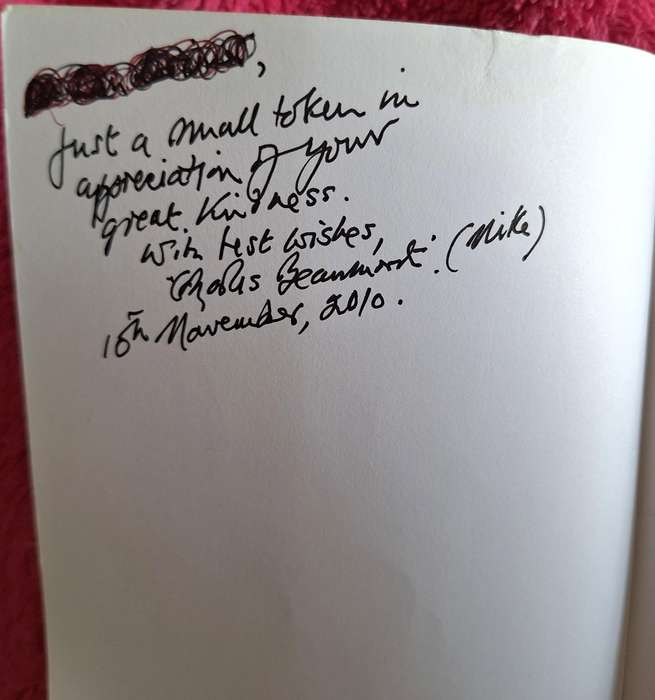 Just a small token in
appreciation of your
great kindness.
With best wishes,
Charles Beaumont. (Mike)
18th November, 2010.